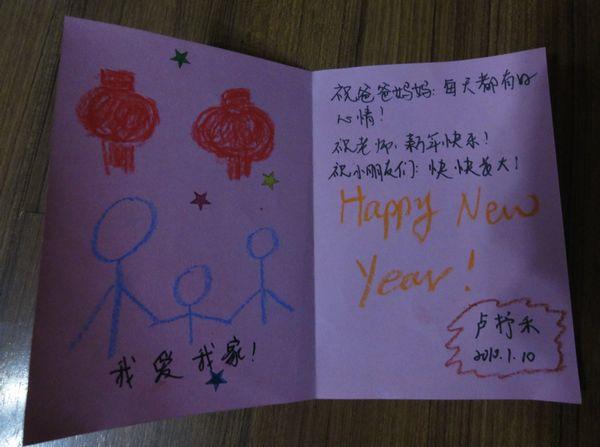 我爱我家!
祝爸爸妈妈:每天都有好
心情!
祝老师:新年快乐!
祝小朋友们:快快长大!
Happy New
Year!
卢抒禾
2010.1.10